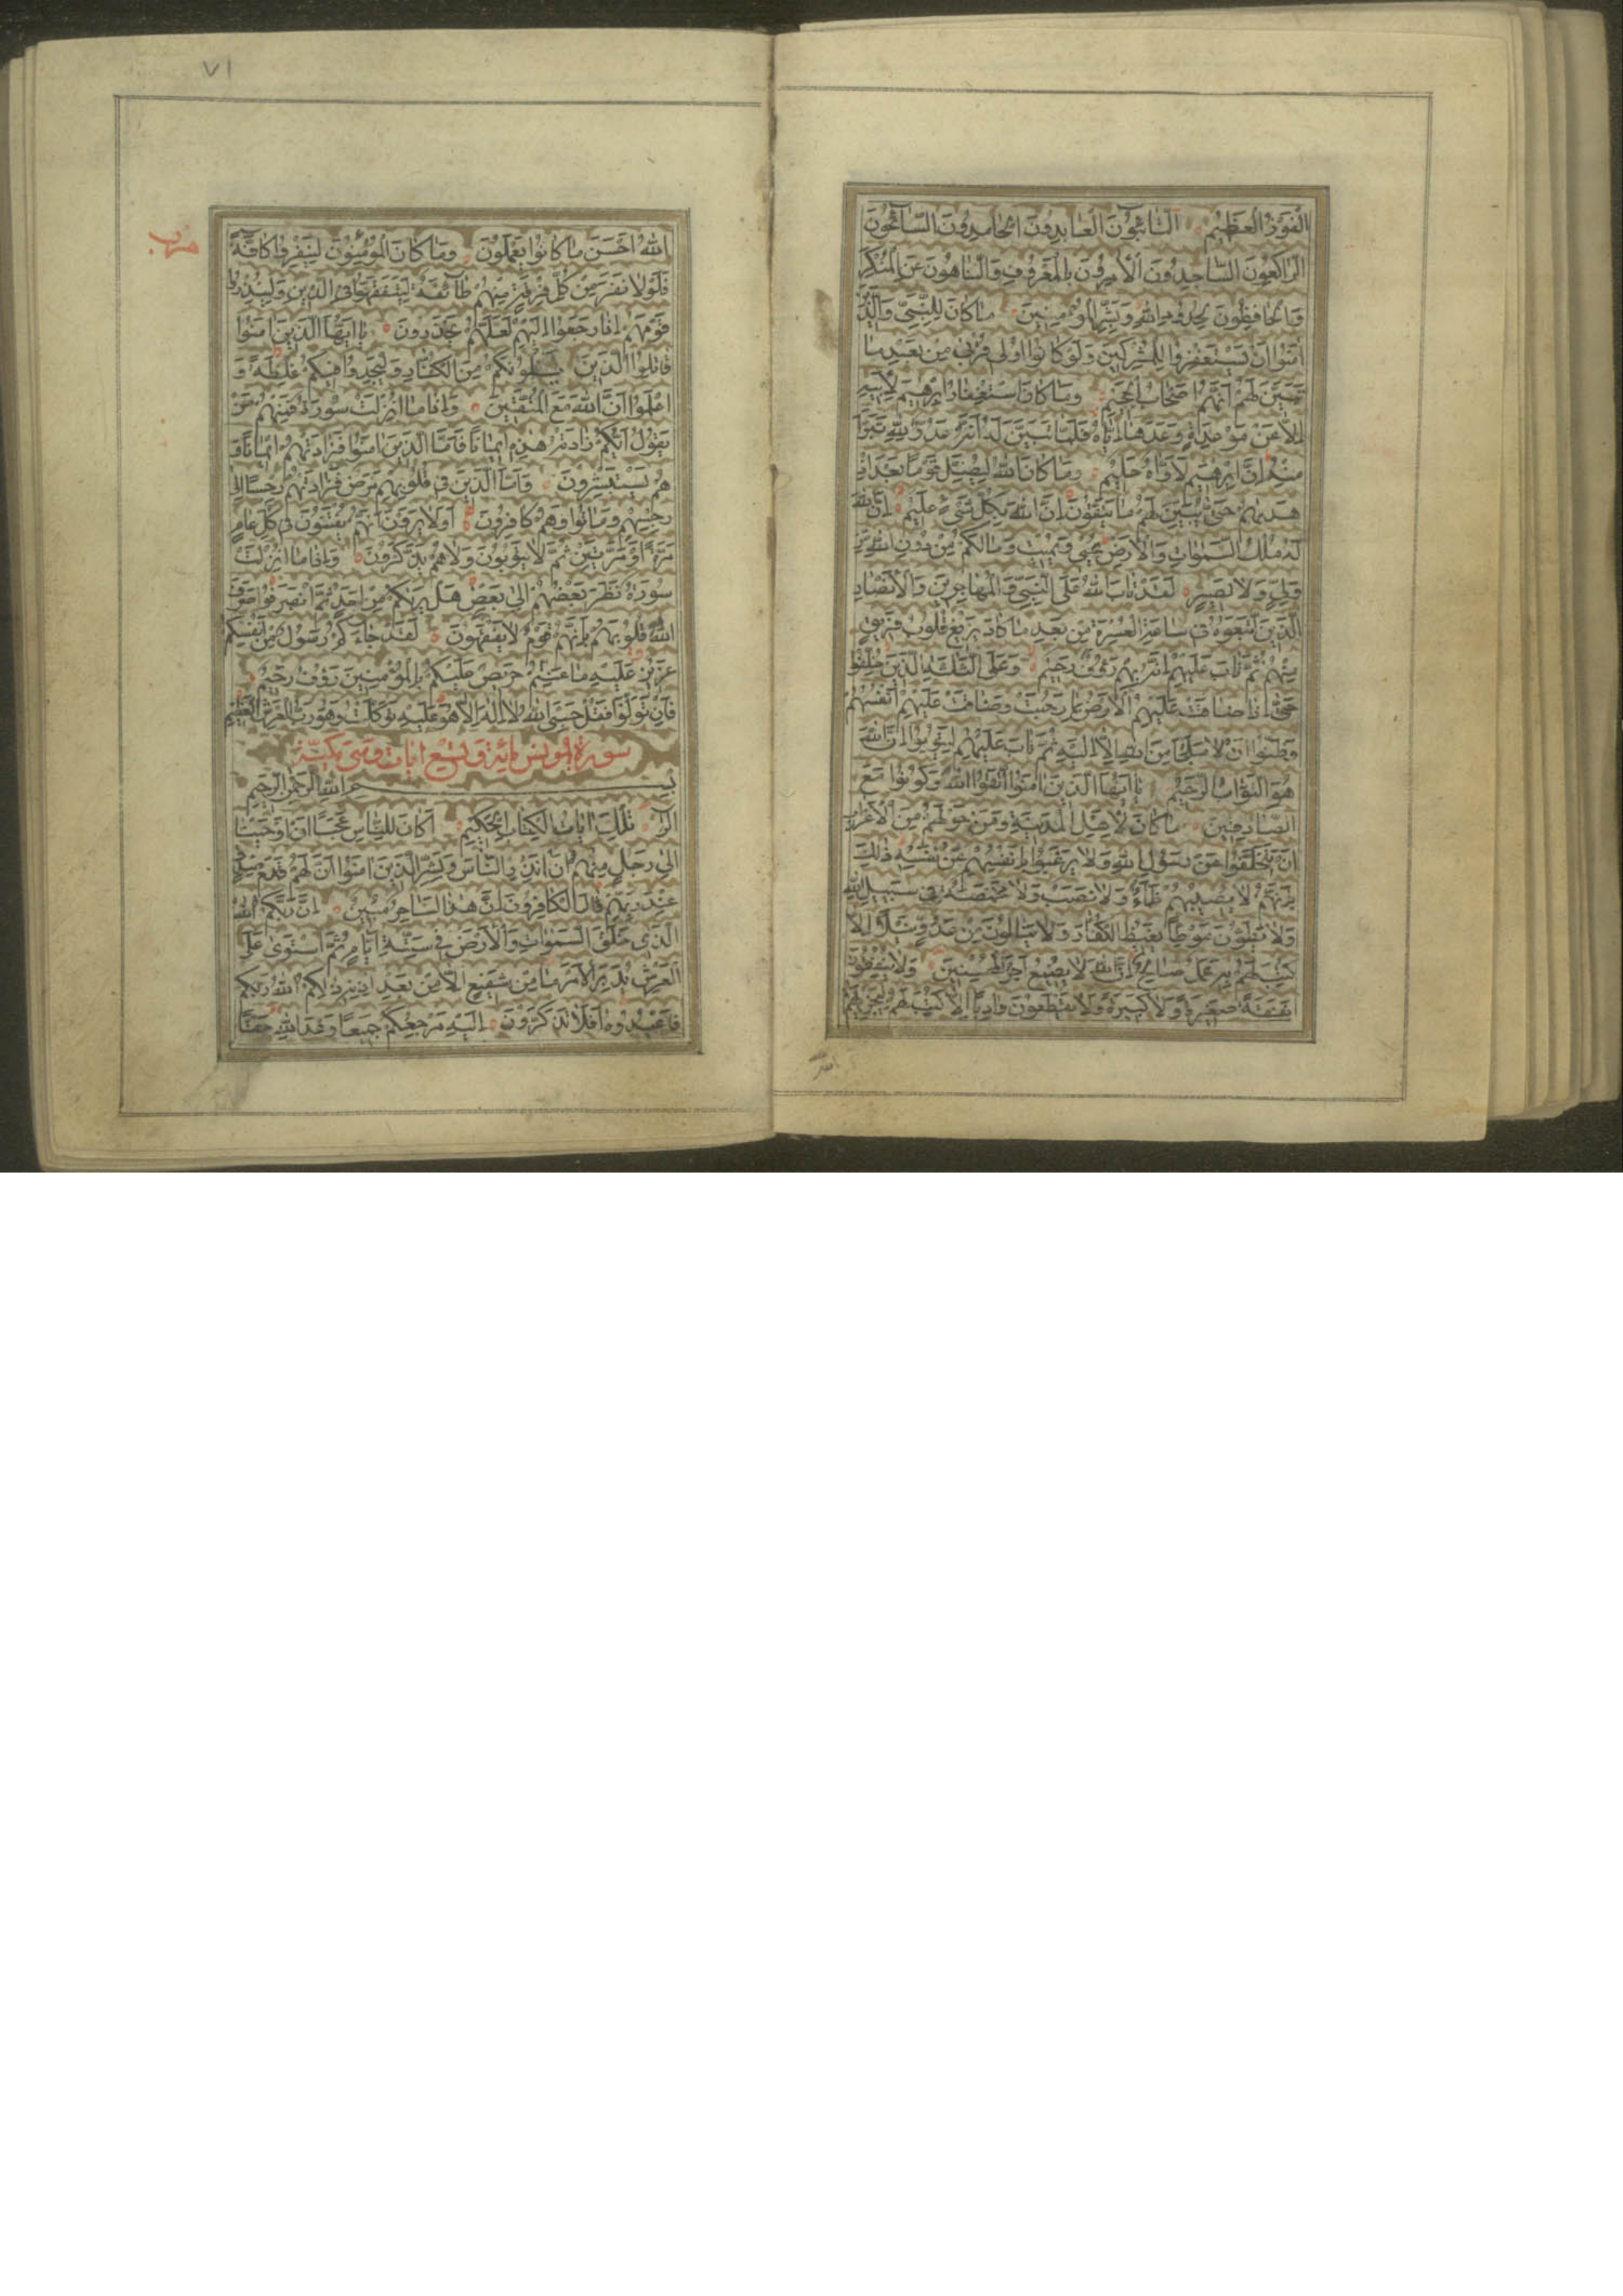 الْفَوْزُ الْعَظِيمُ التَّائِبُونَ الْعَابِدُونَ الْحَامِدُونَ السَّائِحُونَ
الرَّاكِعُونَ السَّاجِدُونَ الْآمِرُونَ بِالْمَعْرُوفِ وَالنَّاهُونَ عَنِ الْمُنْكَرِ
وَالْحَافِظُونَ لِحُدُودِ اللَّهِ وَبَشِّرِ الْمُؤْمِنِينَ مَا كَانَ لِلنَّبِيِّ وَالَّذِينَ
آمَنُوا أَنْ يَسْتَغْفِرُوا لِلْمُشْرِكِينَ وَلَوْ كَانُوا أُولِي قُرْبَى مِنْ بَعْدِ مَا
تَبَيَّنَ لَهُمْ أَنَّهُمْ أَصْحَابُ الْجَحِيمِ وَمَا كَانَ اسْتِغْفَارُ إِبْرَهِيمَ لِأَبِيهِ
إِلَّا عَنْ مَوْعِدَةٍ وَعَدَهَا إِيَّاهُ فَلَمَّا تَبَيَّنَ لَهُ أَنَّهُ عَدُوٌّ لِلَّهِ تَبَرَّأَ
مِنْهُ إِنَّ إِبْرَهِيمَ لَأَوَّاهٌ حَلِيمٌ وَمَا كَانَ اللَّهُ لِيُضِلَّ قَوْمًا بَعْدَ إِذْ
هَدَيهُمْ حَتَّى يُبَيِّنَ لَهُمْ مَا يَتَّقُونَ إِنَّ اللَّهَ بِكُلِّ شَيْءٍ عَلِيمٌ إِنَّ اللَّهَ
لَهُ مُلْكُ السَّمَوَاتِ وَالْأَرْضِ يُحْيِي وَيُمِيتُ وَمَا لَكُمْ مِنْ دُونِ اللَّهِ مِنْ
وَلِيٍّ وَلَا نَصِيرٍ لَقَدْ تَابَ اللَّهُ عَلَى النَّبِيِّ وَالْمُهَاجِرِينَ وَالْأَنْصَارِ
الَّذِينَ اتَّبَعُوهُ فِي سَاعَةِ الْعُسْرَةِ مِنْ بَعْدِ مَا كَادَ يَزِيغُ قُلُوبُ فَرِيقٍ
مِنْهُمْ ثُمَّ تَابَ عَلَيْهِمْ إِنَّهُ بِهِمْ رَؤُفٌ رَحِيمٌ وَعَلَى الثَّلَثَةِ الَّذِينَ خُلِّفُوا
حَتَّى إِذَا ضَاقَتْ عَلَيْهِمُ الْأَرْضُ بِمَا رَحُبَتْ وَضَاقَتْ عَلَيْهِمْ أَنْفُسُهُمْ
وَظَنُّوا أَنْ لَا مَلْجَأَ مِنَ اللَّهِ إِلَّا إِلَيْهِ ثُمَّ تَابَ عَلَيْهِمْ لِيَتُوبُوا إِنَّ اللَّهَ
هُوَ التَّوَّابُ الرَّحِيمُ يَا أَيُّهَا الَّذِينَ آمَنُوا اتَّقُوا اللَّهَ وَكُونُوا مَعَ
الصَّادِقِينَ مَا كَانَ لِأَهْلِ الْمَدِينَةِ وَمَنْ حَوْلَهُمْ مِنَ الْأَعْرَابِ
أَنْ يَتَخَلَّفُوا عَنْ رَسُولِ اللَّهِ وَلَا يَرْغَبُوا بِأَنْفُسِهِمْ عَنْ نَفْسِهِ ذَلِكَ
بِأَنَّهُمْ لَا يُصِيبُهُمْ ظَمَأٌ وَلَا نَصَبٌ وَلَا مَخْمَصَةٌ فِي سَبِيلِ اللَّهِ
وَلَا يَطَؤُنَ مَوْطِئًا يَغِيظُ الْكُفَّارَ وَلَا يَنَالُونَ مِنْ عَدُوٍّ نَيْلًا إِلَّا
كُتِبَ لَهُمْ بِهِ عَمَلٌ صَالِحٌ إِنَّ اللَّهَ لَا يُضِيعُ أَجْرَ الْمُحْسِنِينَ وَلَا يُنْفِقُونَ
نَفَقَةً صَغِيرَةً وَلَا كَبِيرَةً وَلَا يَقْطَعُونَ وَادِيًا إِلَّا كُتِبَ لَهُمْ لِيَجْزِيَهُمُ
الله
٧١
حزب
اللَّهُ أَحْسَنَ مَا كَانُوا يَعْمَلُونَ وَمَا كَانَ الْمُؤْمِنُونَ لِيَنْفِرُوا كَافَّةً
فَلَوْلَا نَفَرَ مِنْ كُلِّ فِرْقَةٍ مِنْهُمْ طَائِفَةٌ لِيَتَفَقَّهُوا فِي الدِّينِ وَلِيُنْذِرُوا
قَوْمَهُمْ إِذَا رَجَعُوا إِلَيْهِمْ لَعَلَّهُمْ يَحْذَرُونَ يَا أَيُّهَا الَّذِينَ آمَنُوا
قَاتِلُوا الَّذِينَ يَلُونَكُمْ مِنَ الْكُفَّارِ وَلْيَجِدُوا فِيكُمْ غِلْظَةً وَ
اعْلَمُوا أَنَّ اللَّهَ مَعَ الْمُتَّقِينَ وَإِذَا مَا أُنْزِلَتْ سُورَةٌ فَمِنْهُمْ مَنْ
يَقُولُ أَيُّكُمْ زَادَتْهُ هَذِهِ إِيمَانًا فَأَمَّا الَّذِينَ آمَنُوا فَزَادَتْهُمْ إِيمَانًا وَ
هُمْ يَسْتَبْشِرُونَ وَأَمَّا الَّذِينَ فِي قُلُوبِهِمْ مَرَضٌ فَزَادَتْهُمْ رِجْسًا إِلَى
رِجْسِهِمْ وَمَاتُوا وَهُمْ كَافِرُونَ أَوَلَا يَرَوْنَ أَنَّهُمْ يُفْتَنُونَ فِي كُلِّ عَامٍ
مَرَّةً أَوْ مَرَّتَيْنِ ثُمَّ لَا يَتُوبُونَ وَلَا هُمْ يَذَّكَّرُونَ وَإِذَا مَا أُنْزِلَتْ
سُورَةٌ نَظَرَ بَعْضُهُمْ إِلَى بَعْضٍ هَلْ يَرَيكُمْ مِنْ أَحَدٍ ثُمَّ انْصَرَفُوا صَرَفَ
اللَّهُ قُلُوبَهُمْ بِأَنَّهُمْ قَوْمٌ لَا يَفْقَهُونَ لَقَدْ جَاءَكُمْ رَسُولٌ مِنْ أَنْفُسِكُمْ
عَزِيزٌ عَلَيْهِ مَا عَنِتُّمْ حَرِيصٌ عَلَيْكُمْ بِالْمُؤْمِنِينَ رَؤُفٌ رَحِيمٌ
فَإِنْ تَوَلَّوْا فَقُلْ حَسْبِيَ اللَّهُ لَا إِلَهَ إِلَّا هُوَ عَلَيْهِ تَوَكَّلْتُ وَهُوَ رَبُّ الْعَرْشِ الْعَظِيمِ
سورة يونس مائة وتسع ايات وهى مكية
بِسْمِ اللَّهِ الرَّحْمَنِ الرَّحِيمِ
الر تِلْكَ آيَاتُ الْكِتَابِ الْحَكِيمِ أَكَانَ لِلنَّاسِ عَجَبًا أَنْ أَوْحَيْنَا
إِلَى رَجُلٍ مِنْهُمْ أَنْ أَنْذِرِ النَّاسَ وَبَشِّرِ الَّذِينَ آمَنُوا أَنَّ لَهُمْ قَدَمَ صِدْقٍ
عِنْدَ رَبِّهِمْ قَالَ الْكَافِرُونَ إِنَّ هَذَا لَسَاحِرٌ مُبِينٌ إِنَّ رَبَّكُمُ اللَّهُ
الَّذِي خَلَقَ السَّمَوَاتِ وَالْأَرْضَ فِي سِتَّةِ أَيَّامٍ ثُمَّ اسْتَوَى عَلَى
الْعَرْشِ يُدَبِّرُ الْأَمْرَ مَا مِنْ شَفِيعٍ إِلَّا مِنْ بَعْدِ إِذْنِهِ ذَلِكُمُ اللَّهُ رَبُّكُمْ
فَاعْبُدُوهُ أَفَلَا تَذَكَّرُونَ إِلَيْهِ مَرْجِعُكُمْ جَمِيعًا وَعْدَ اللَّهِ حَقًّا